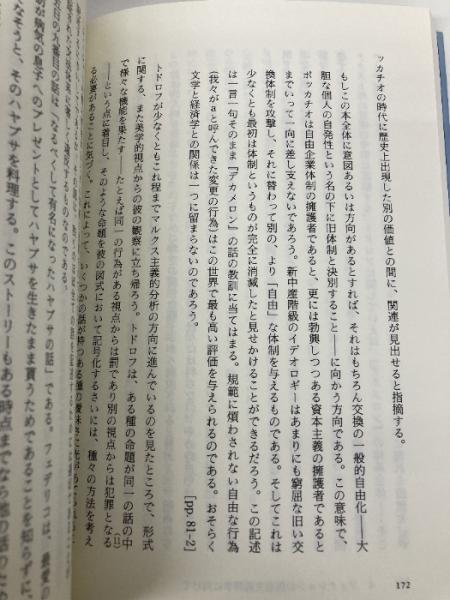 ッカチオの時代に歴史上出現した別の価値との間に、関連が見出せると指摘する。
もしこの本全体に意図あるいは方向があるとすれば、それはもちろん交換の一般的自由化――大
胆な個人の自発性という名の下に旧体制と決別すること――に向かう方向である。この意味で、
ボッカチオは自由企業体制の擁護者であると、更には勃興しつつある資本主義の擁護者であると
までいって一向に差し支えないであろう。新中産階級のイデオロギーはあまりにも窮屈な旧い交
換体制を攻撃し、それに替わって別の、より「自由」な体制を与えるものである。そしてこれは
少なくとも最初は体制というものが完全に消滅したと見せかけることができるだろう。この記述
は一言一句そのまま『デカメロン』の話の教訓に当てはまる。規範に煩わされない自由な行為
(我々がaと呼んできた変更の行為)はこの世界で最も高い評価を与えられるのである。おそらく
文学と経済学との関係は一つに留まらないのであろう。
[pp. 81-2]
トドロフが少なくともこれ程までマルクス主義的分析の方向に進んでいるのを見たところで、形式
に関する、また美学的視点からの彼の観察に立ち帰ろう。トドロフは、ある種の命題が同一の話の中
で様々な機能を果たす たとえば同一の行為がある視点からは罰であり別の視点からは犯罪となる
――という点に着目し、そのような命題を彼の図式において記号化するさいには、種々の方法を考え
(11)
る必要があることに気づく。これによって、いくつかの話が持つある種の曖昧さに光が
五日目の九番目の話は「なるべくして有名になったハヤブサの話」である。
が病気の息子へのプレゼントとしてハヤブサを生きたまま貰うためであることを知らずに、
なそうと、そのハヤブサを料理する。このストーリーもある時点までなら
172